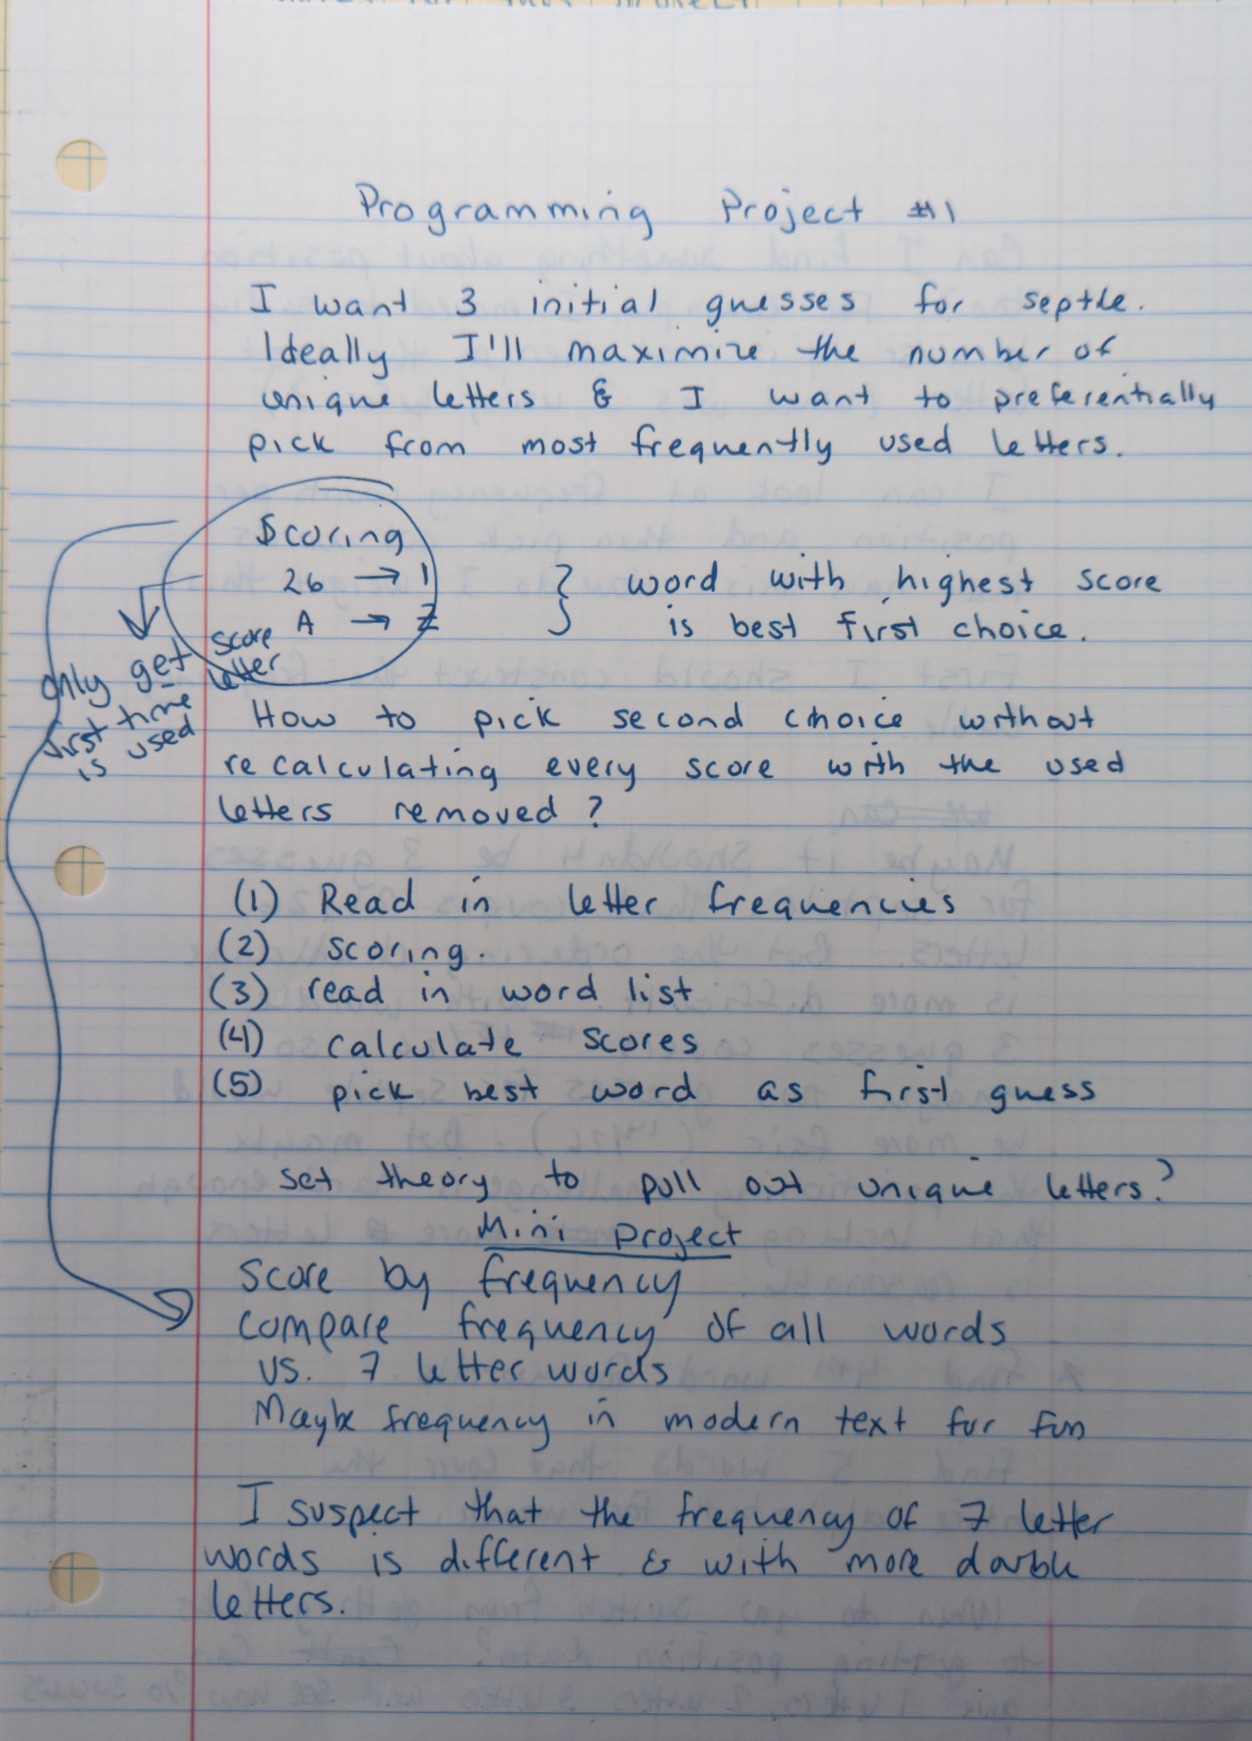 Programming Project #1
I want 3 initial guesses for septle.
Ideally I'll maximize the number of
unique letters & I want to preferentially
pick from most frequently used letters.
Scoring
26 → 1
A → Z
} word with highest score
is best first choice.
only get score
first time letter
is used
How to pick second choice without
recalculating every score with the used
letters removed?
(1) Read in letter frequencies
(2) scoring.
(3) read in word list
(4) calculate scores
(5) pick best word as first guess
set theory to pull out unique letters?
Mini project
Score by frequency
compare frequency of all words
vs. 7 letter words
Maybe frequency in modern text for fun
I suspect that the frequency of 7 letter
words is different & with more double
letters.